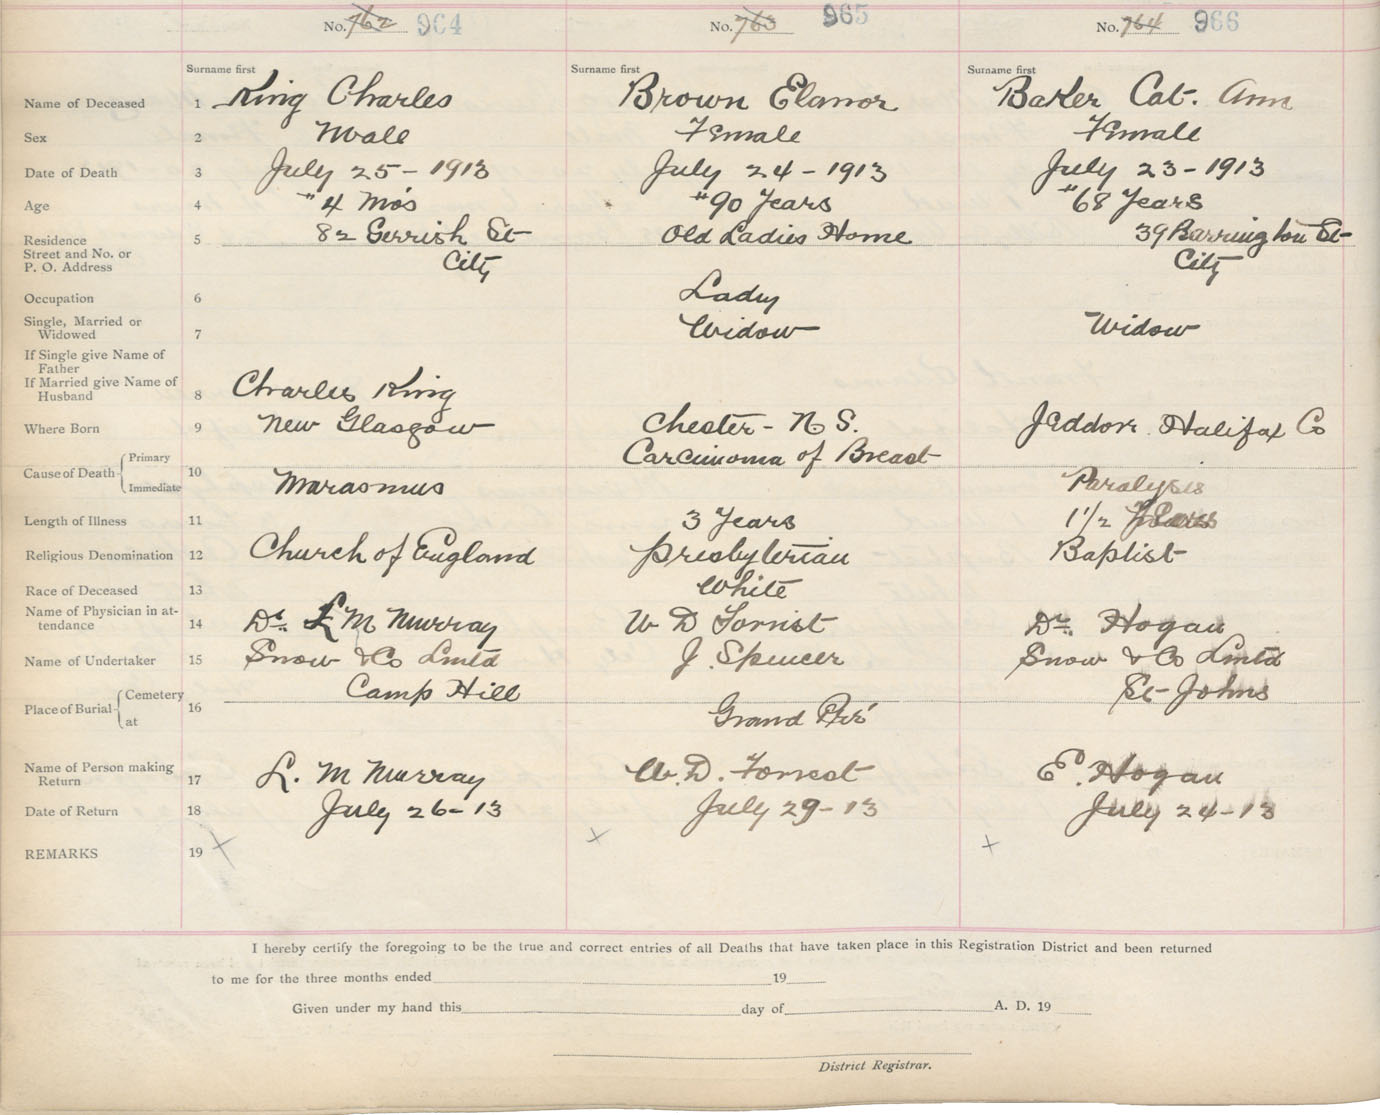 No. 762 964
No. 763 965
No. 764 966
Surname first Surname first Surname first
Name of Deceased 1 King Charles Brown Elanor Baker Cat. Ann
Sex 2 Male Female Female
Date of Death 3 July 25 - 1913 July 24 - 1913 July 23 - 1913
Age 4 " 4 Mo's "90 Years "68 Years
Residence 5 82 Gerrish St Old Ladies Home 39 Barrington St
Street and No. or
P. O. Address City City
Occupation 6 Lady
Single, Married or
Widowed 7 Widow Widow
If Single give Name of
Father
If Married give Name of
Husband 8 Charles King
Where Born 9 New Glasgow Chester - N S. Jeddorr Halifax Co
Cause of Death Primary 10 Carcinoma of Breast
Immediate Marasmus Paralysis
Length of Illness 11 3 Years 1 1/2 Years
Religious Denomination 12 Church of England Presbyterian Baptist
Race of Deceased 13 White
Name of Physician in at-
tendance 14 Dr. L M Murray W D Forrist Dr. Hogan
Name of Undertaker 15 Snow & Co Lmtd J. Spencer Snow & Co Lmtd
Place of Burial Cemetery 16 Camp Hill St Johns
at Grand Pré
Name of Person making
Return 17 L. M Murray W. D. Forrest E. Hogan
Date of Return 18 July 26 - 13 July 29 - 13 July 24 - 13
REMARKS 19 x x x
I hereby certify the foregoing to be the true and correct entries of all Deaths that have taken place in this Registration District and been returned
to me for the three months ended 19
Given under my hand this day of A. D. 19
District Registrar.